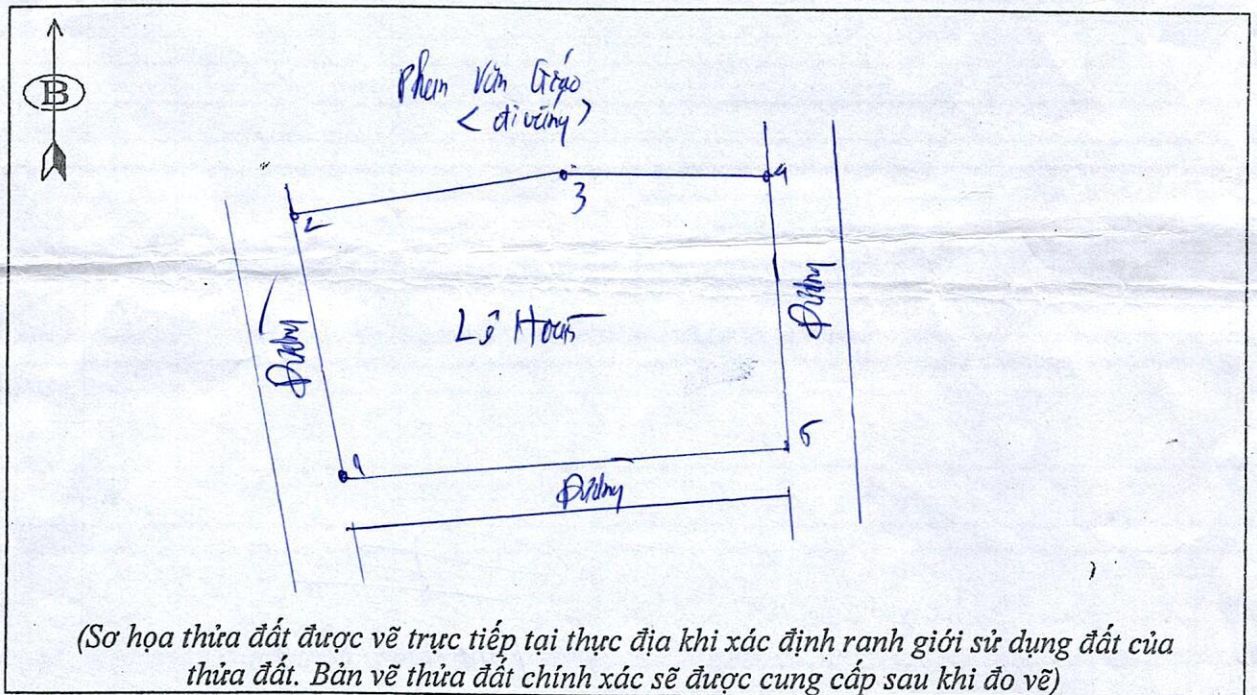 B
Phạm Văn Giáo
< đi vắng >
2
3
4
Đường
Đường
Lê Hoàn
1
5
Đường
(Sơ họa thửa đất được vẽ trực tiếp tại thực địa khi xác định ranh giới sử dụng đất của
thửa đất. Bản vẽ thửa đất chính xác sẽ được cung cấp sau khi đo vẽ)